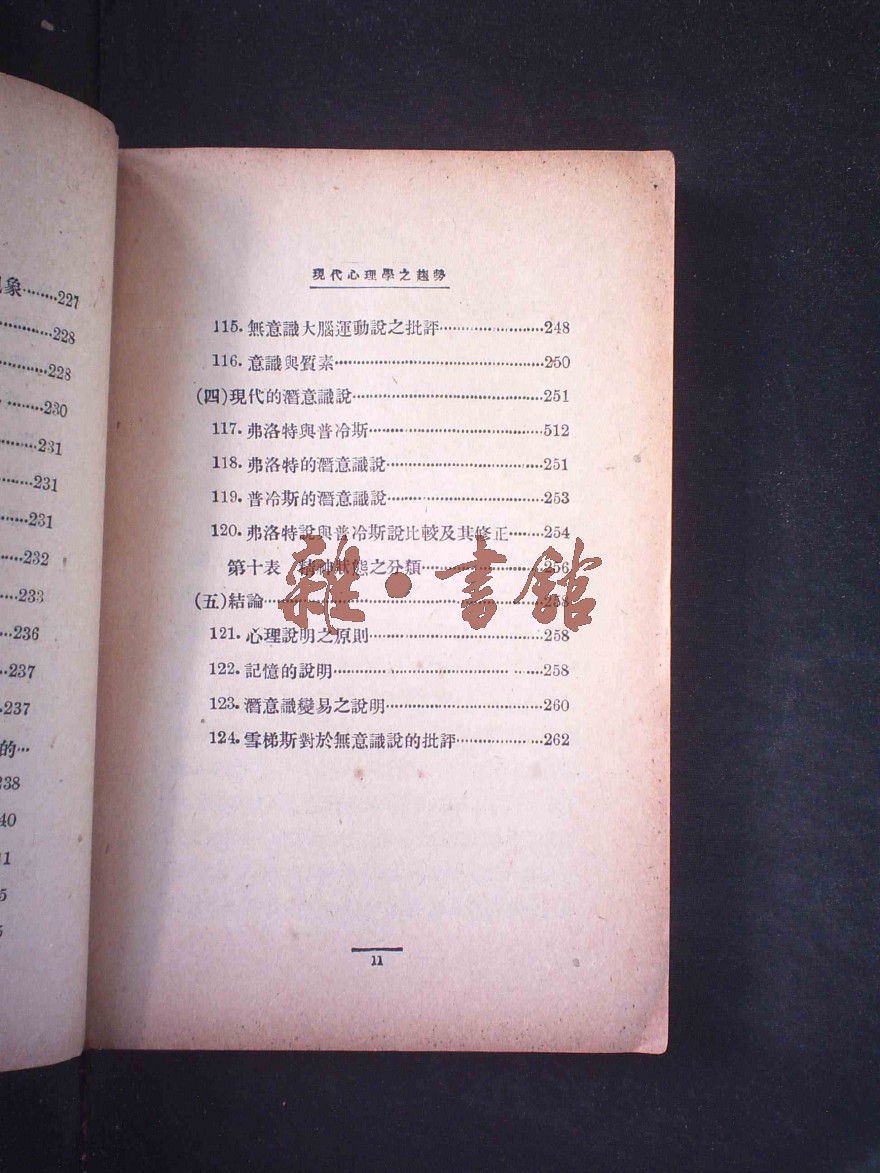 象········227
228
228
230
231
231
231
232
233
236
237
237
的···
238
現代心理學之趨勢
115. 無意識大腦運動說之批評························248
116. 意識與質素················································250
(四)現代的潛意識說············································251
117. 弗洛特與普冷斯········································512
118. 弗洛特的潛意識說····································251
119. 普冷斯的潛意識說····································253
120. 弗洛特說與普冷斯說比較及其修正········254
第十表 精神狀態之分類····························256
(五)結論································································258
121. 心理說明之原則········································258
122. 記憶的說明················································258
123. 潛意識變易之說明····································260
124. 雪梯斯對於無意識說的批評····················262
11
雜·書館